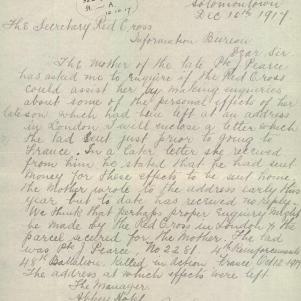 Solomontown
Dec 10th 1917
The Secretary Red Cross
Information Bureau
Dear Sir
The Mother of the late Pte J Pearce
has asked me to enquire if the Red Cross
could assist her by making enquiries
about some of the personal effects of her
late son which had been left at an address
in London I will enclose a letter which
the lad sent just prior to going to
France. In a later letter she received
from him he stated that he had sent
money for these effects to be sent home,
the Mother wrote to the address early this
year but to date has received no reply.
We think that perhaps proper enquiry might
be made by the Red Cross in London & the
parcel secured for the Mother. The lad
was Pte J Pearce No 2281 4th Reinforcements
48th Battalion, killed in action France Oct 12 1917
The address at which effects were left
The Manager
Hotel